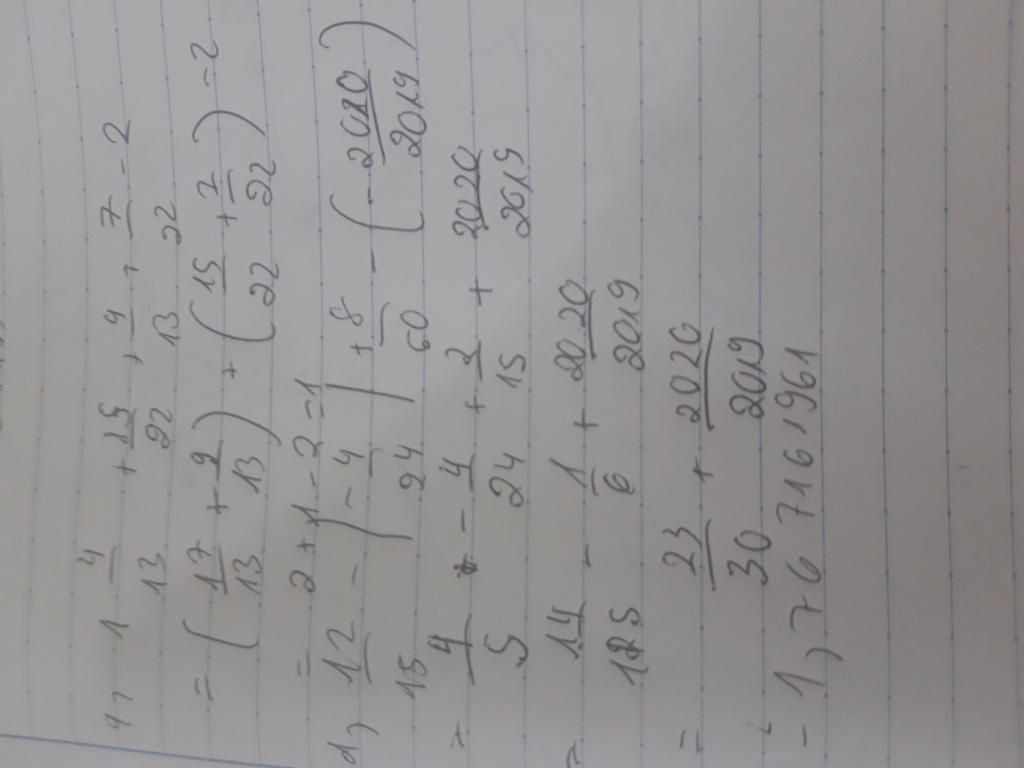 c, 1 4/13 + 15/22 + 9/13 + 7/22 - 2
= (17/13 + 9/13) + (15/22 + 7/22) - 2
= 2 + 1 - 2 = 1
d, 12/15 - |-4/24| + 8/60 - (-2020/2019)
= 4/5 - 4/24 + 2/15 + 2020/2019
= 14/15 - 1/6 + 2020/2019
= 23/30 + 2020/2019
= 1,767161961